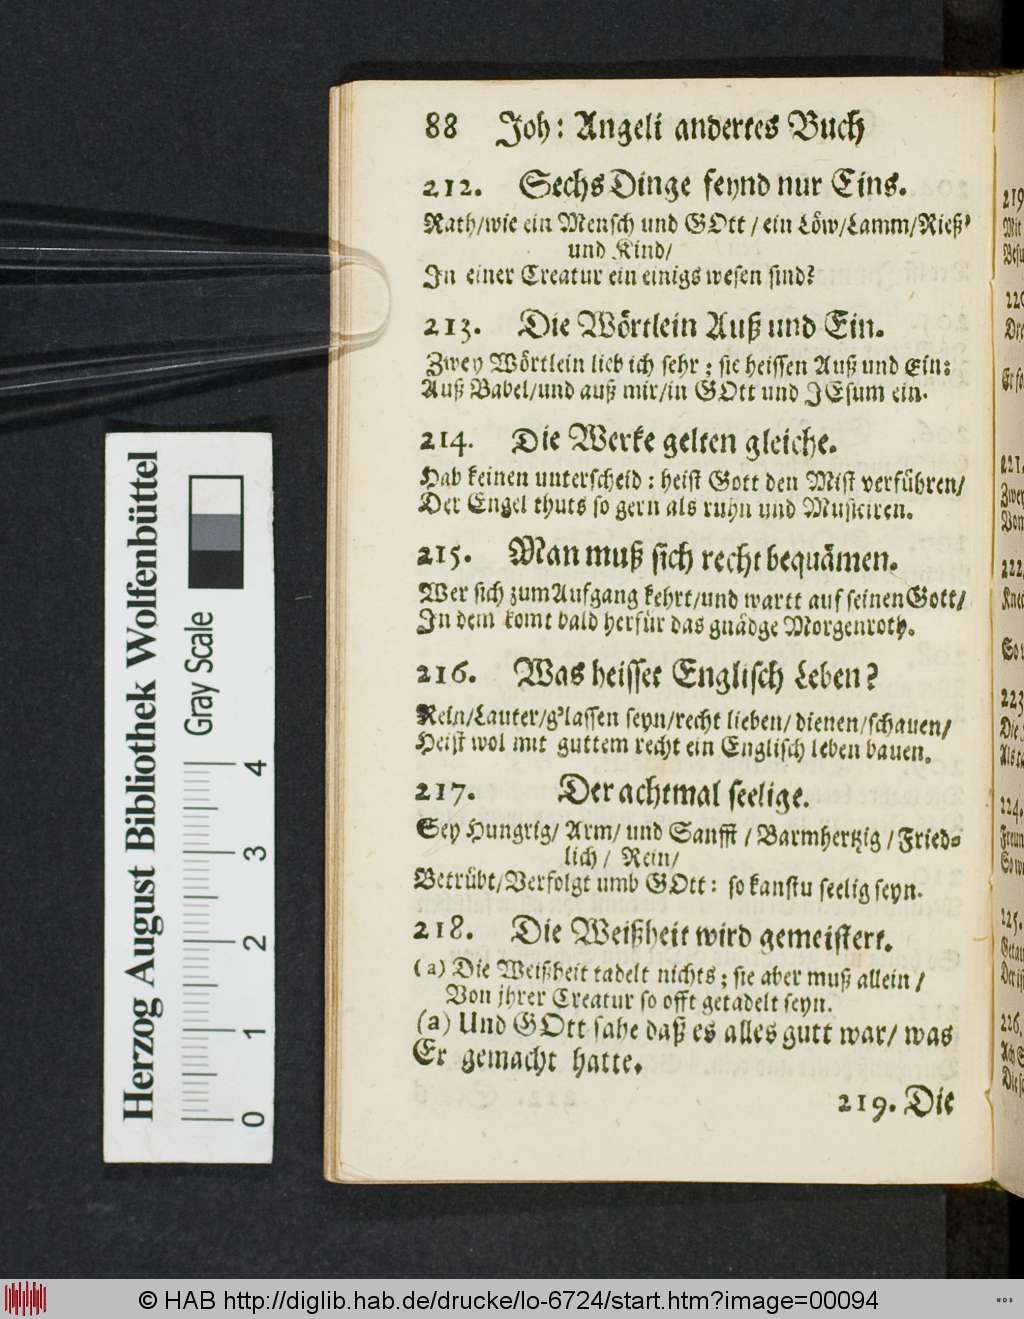 88 Joh: Angeli andertes Buch
212. Sechs Dinge seynd nur Eins.
Rath/wie ein Mensch und GOtt / ein Löw/Lamm/Rieß'
und Kind/
In einer Creatur ein einigs wesen sind?
213. Die Wörtlein Auß und Ein.
Zwey Wörtlein lieb ich sehr: sie heissen Auß und Ein:
Auß Babel/und auß mir/in GOtt und JEsum ein.
214. Die Werke gelten gleiche.
Hab keinen unterscheid: heist Gott den Mist verführen/
Der Engel thuts so gern als ruhn und Musiciren.
215. Man muß sich recht bequämen.
Wer sich zum Aufgang kehrt/und wartt auf seinen Gott/
In dem komt bald herfür das gnädge Morgenroth.
216. Was heisset Englisch Leben?
Rein/Lauter/g'lassen seyn/recht lieben/dienen/schauen/
Heist wol mit guttem recht ein Englisch leben bauen.
217. Der achtmal seelige.
Sey Hungrig/ Arm/ und Sanfft / Barmhertzig / Fried-
lich / Rein/
Betrübt/Verfolgt umb GOtt: so kanstu seelig seyn.
218. Die Weißheit wird gemeistert.
(a) Die Weißheit tadelt nichts; sie aber muß allein /
Von jhrer Creatur so offt getadelt seyn.
(a) Und GOtt sahe daß es alles gutt war/ was
Er gemacht hatte.
219. Die
219
Mit
220
221.
Zwey
Von
222.
So
223
Die
224.
So
225.
226.
Herzog August Bibliothek Wolfenbüttel
Gray Scale
0 1 2 3 4
© HAB http://diglib.hab.de/drucke/lo-6724/start.htm?image=00094